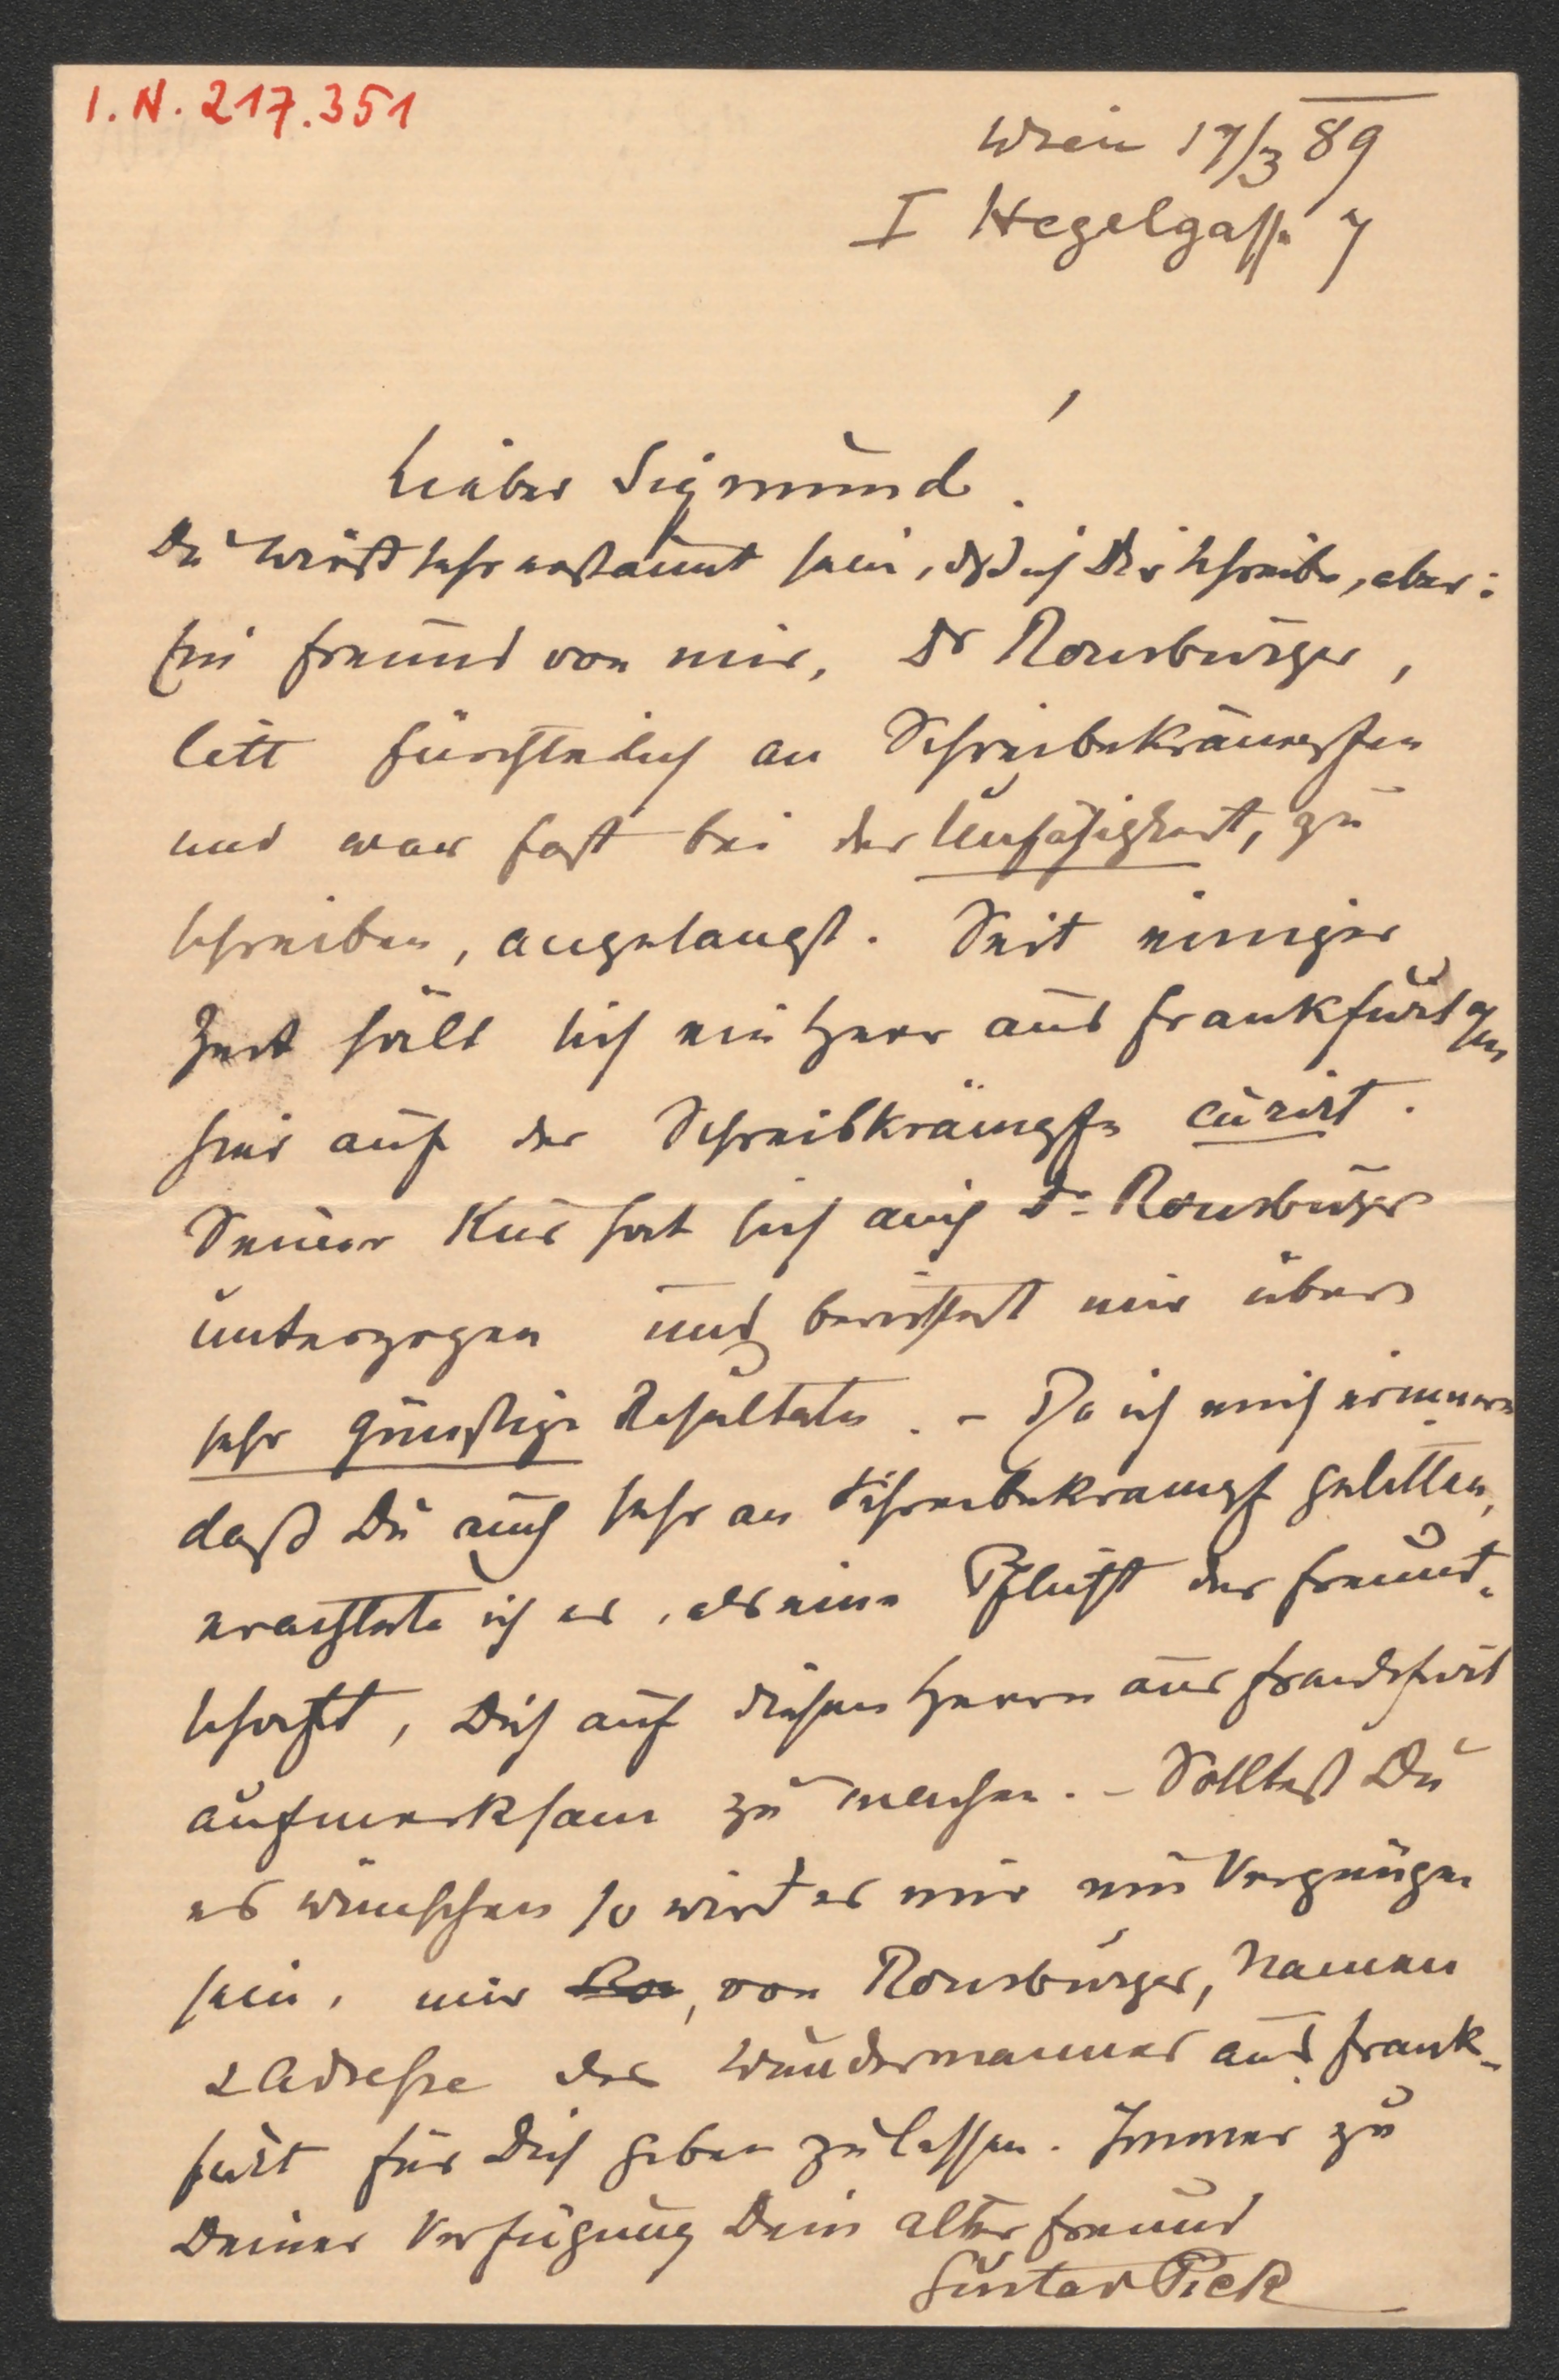 I. N. 217.351
Wien 17/3 89
I Hegelgasse 7
Lieber Sigmund!
Du wirst sehr erstaunt sein, dß ich Dir schreibe, aber:
Ein Freund von mir, Dr Ronsburger,
litt fürchterlich an Schreibekrämpfen
und war fast bei der Unfähigkeit, zu
schreiben, angelangt. Seit einiger
Zeit hält sich ein Herr aus Frankfurt
hier auf der Schreibkrämpfe curirt.
Seiner Kur hat sich auch Dr. Ronsburger
unterzogen und berichtet mir über
sehr günstige Resultate. – Da ich mich erinnere
daß Du auch sehr an Schreibekrampf gelitten,
erachtete ich es, als eine Pflicht der Freund-
schaft, Dich auf diesen Herrn aus Frankfurt
aufmerksam zu machen. – Solltest Du
es wünschen so wird es mir ein Vergnügen
sein, mir Ro, von Ronsburger, Namen
& Adresse des Wundermannes aus Frank-
furt für Dich geben zu lassen. Immer zu
Deiner Verfügung Dein alter Freund
Gustav Pick